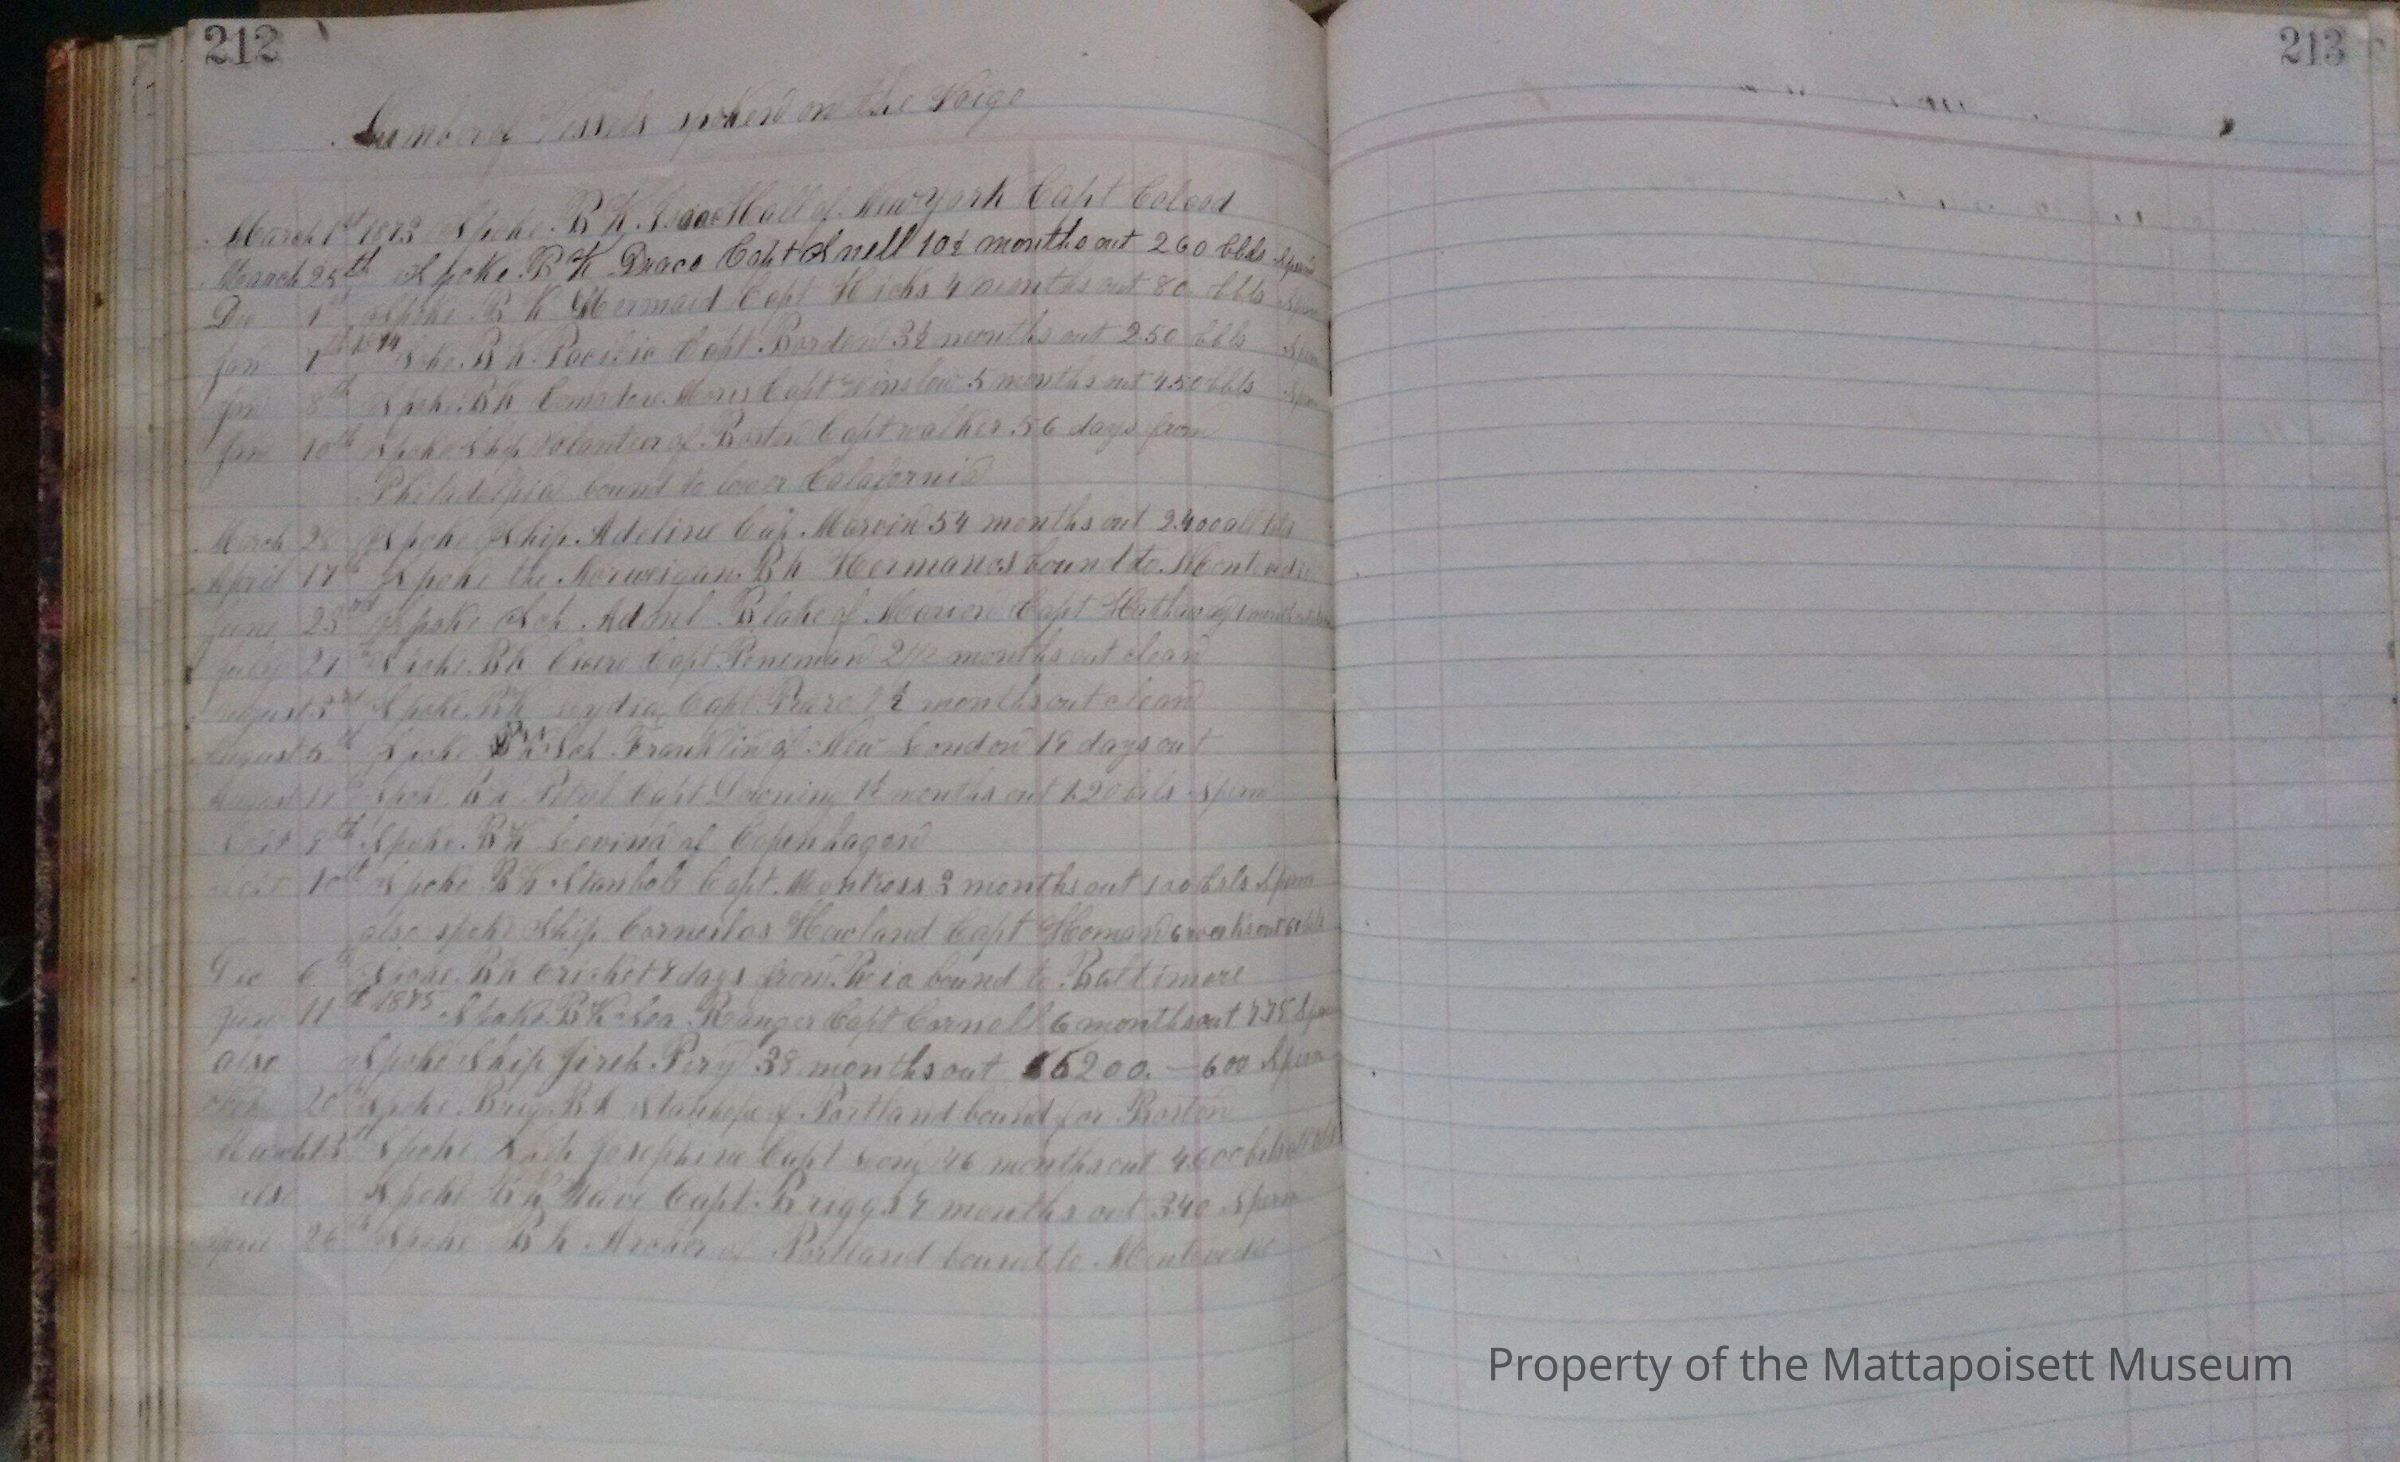 212
213
Number of Vessels spoken on the Voige
March 1st 1873 Spoke Bk Isaac Hall of New York Capt Colood
March 25th Spoke Bk Draco Capt Snell 10½ months out 260 bbls Sperm
Dec 1st Spoke Bk Mermaid Capt Hicks 4 months out 80 bbls Sperm
Jan 1st 1874 Spoke Bk Pacific Capt Borden 3½ months out 250 bbls Sperm
Jan 8th Spoke Bk Comodore Moris Capt Winslow 5 months out 450 bbls Sperm
Jan 10th Spoke Ship Volanteer of Boston Capt walker 56 days from
Philadelpia bound to lower Calafornia
March 28 Spoke Ship Adeline Cap Marvin 54 months out 2400 all
April 17 Spoke the Norweigan Bk Hermanos bound to
June 23rd Spoke Sch Blake of Marion Capt Hathaway
July 21 Spoke Bk Cicero Capt Peneman months out clean
August 3rd Spoke Bk Lydia Capt 1½ months out clean
August 5 Spoke Sch Franklin of New London days out
August Spoke Bk Petrel Capt months out 120 bbls Sperm
Sept 8th Spoke Bk of Copenhagen
Sept 10th Spoke Bk Capt Montross 3 months out 100 bbls Sperm
also spoke Ship Howland Capt Homan 6 weeks out
Dec 6 Spoke Bk Cricket days from Rio bound to Baltimore
Jan 11th 1875 Spoke Bk Sea Ranger Capt Cornell 6 months out Sperm
also Spoke Ship Jireh Pery 38 months out 5200. — 600 Sperm
20th Spoke Brig Bk of Portland bound for Boston
March Spoke Josephine Capt Long 46 months out
also Spoke Bk Wave Capt Briggs months out 340 Sperm
26th Spoke Bk Archer of Portland bound to
Property of the Mattapoisett Museum